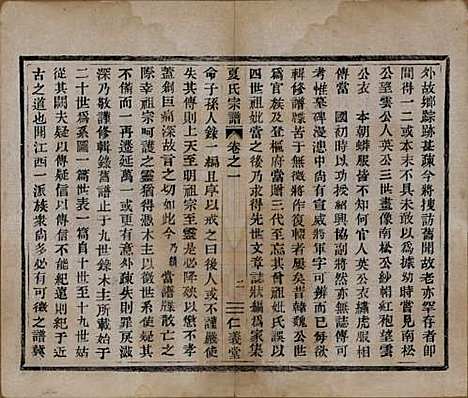 外故鄉踪跡甚疎今將搜訪舊聞故老亦罕存者即
間得一二或未本不具未敢以為據幼時嘗見南松
公望雲公人英公三世畫像南松公紗帽紅袍望雲
公衣 本朝蟒服皆不知何官人英公繡虎服相
傳當 國初時以武功授紹興協副將然亦無誌傳可
考惟墓碑漫漶中尚有宣威將軍字可辨而已其後
輯修譜牒苦于無徵將作復輟者屢矣昔韓魏公世
為官族及登樞府當徵三代至忘其曾祖妣氏誤以
四世祖妣當之後乃求得先世文章誌狀編為家集
夏氏宗譜 卷之一 二 仁義堂
命子孫人錄一編且序以戒之曰後人或不謹嚴使
失其傳則上天至靈祖宗至明是必降殃以懲不孝
蓋創巨痛深故言之一切如此今乃賴當譜牒散亡之
際幸祖宗呵護之靈猶存木主以徵信於後若復推
不備而一再遷延或有意外疎失則罪戾滋
深乃敬謹修輯錄舊譜止于九世錄木主所載始于
二十世為系圖一篇世表一篇自十世至十九世姑
從其闕夫疑以傳信不能紀遠則紀于近
古之道也聞江西一派族衆尚多必有可徵之譜冀